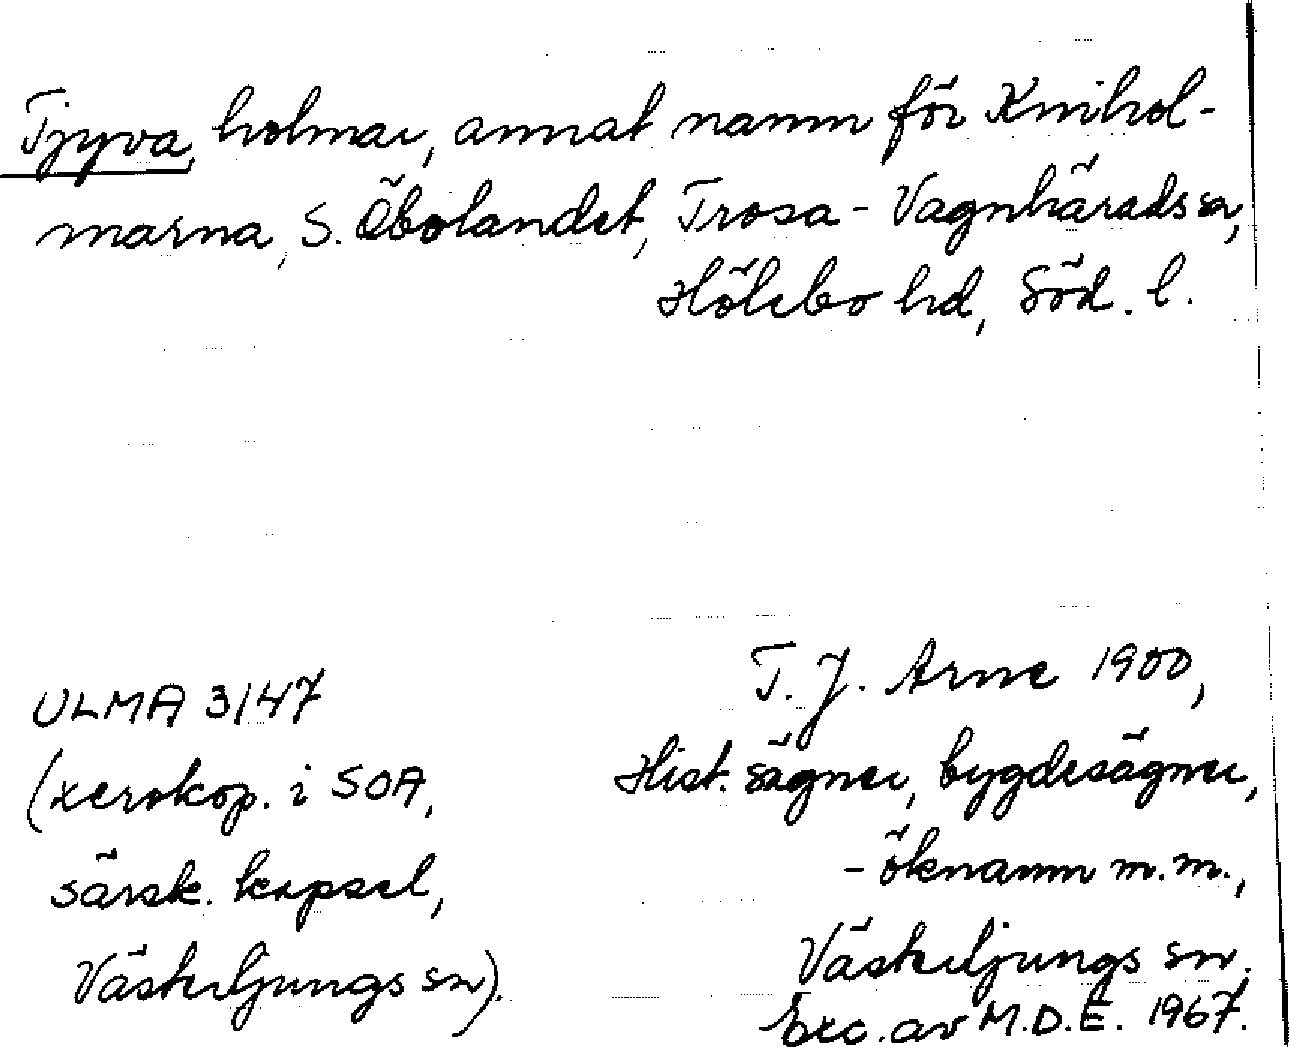 Tjyva holmar, annat namn för Knihol-
marna, S. Öbolandet, Trosa-Vagnhärads sn,
Hölebo hd, Söd. l.
T. J. Arne 1900,
Hist. sägner, bygdesägner,
- öknamn m.m.,
Västerljungs sn.
Exc. av M.D.E. 1967.
ULMA 3147
(xerokop. i SOA,
särsk. kapsel,
Västerljungs sn).